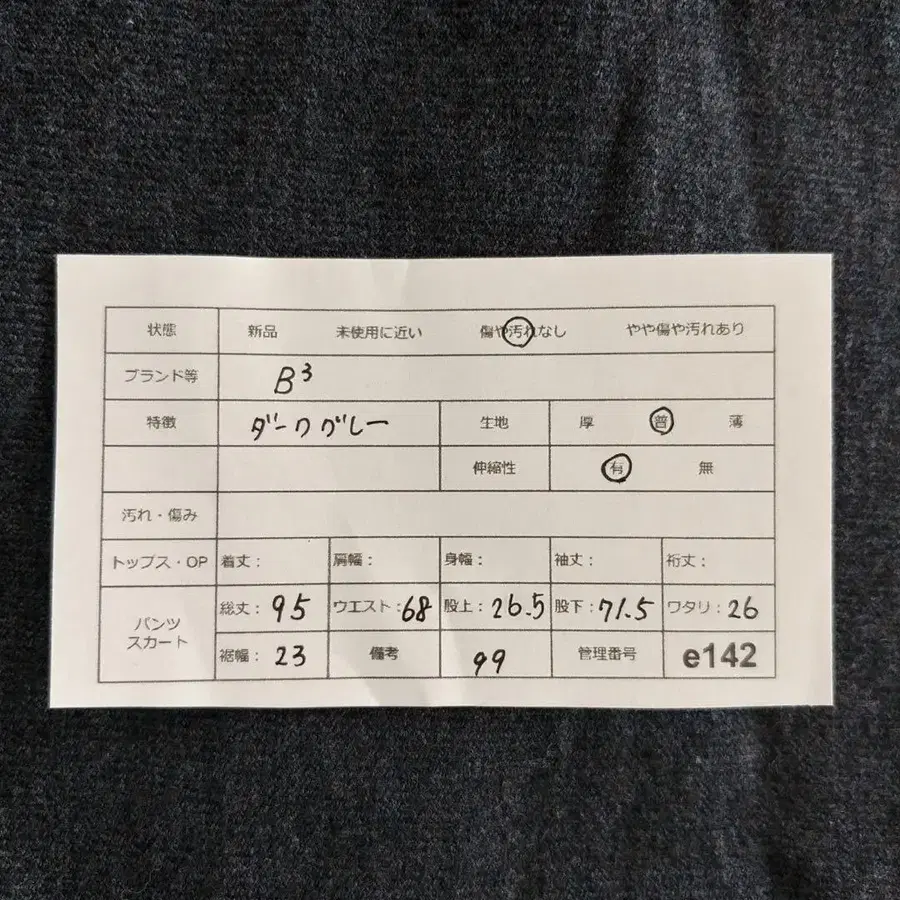 状態 新品 未使用に近い 傷や汚れなし やや傷や汚れあり
ブランド等 B³
特徴 ダークグレー 生地 厚 普 薄
伸縮性 有 無
汚れ・傷み
トップス・OP 着丈: 肩幅: 身幅: 袖丈: 裄丈:
パンツ
スカート
総丈: 95 ウエスト: 68 股上: 26.5 股下: 71.5 ワタリ: 26
裾幅: 23 備考 99 管理番号 e142